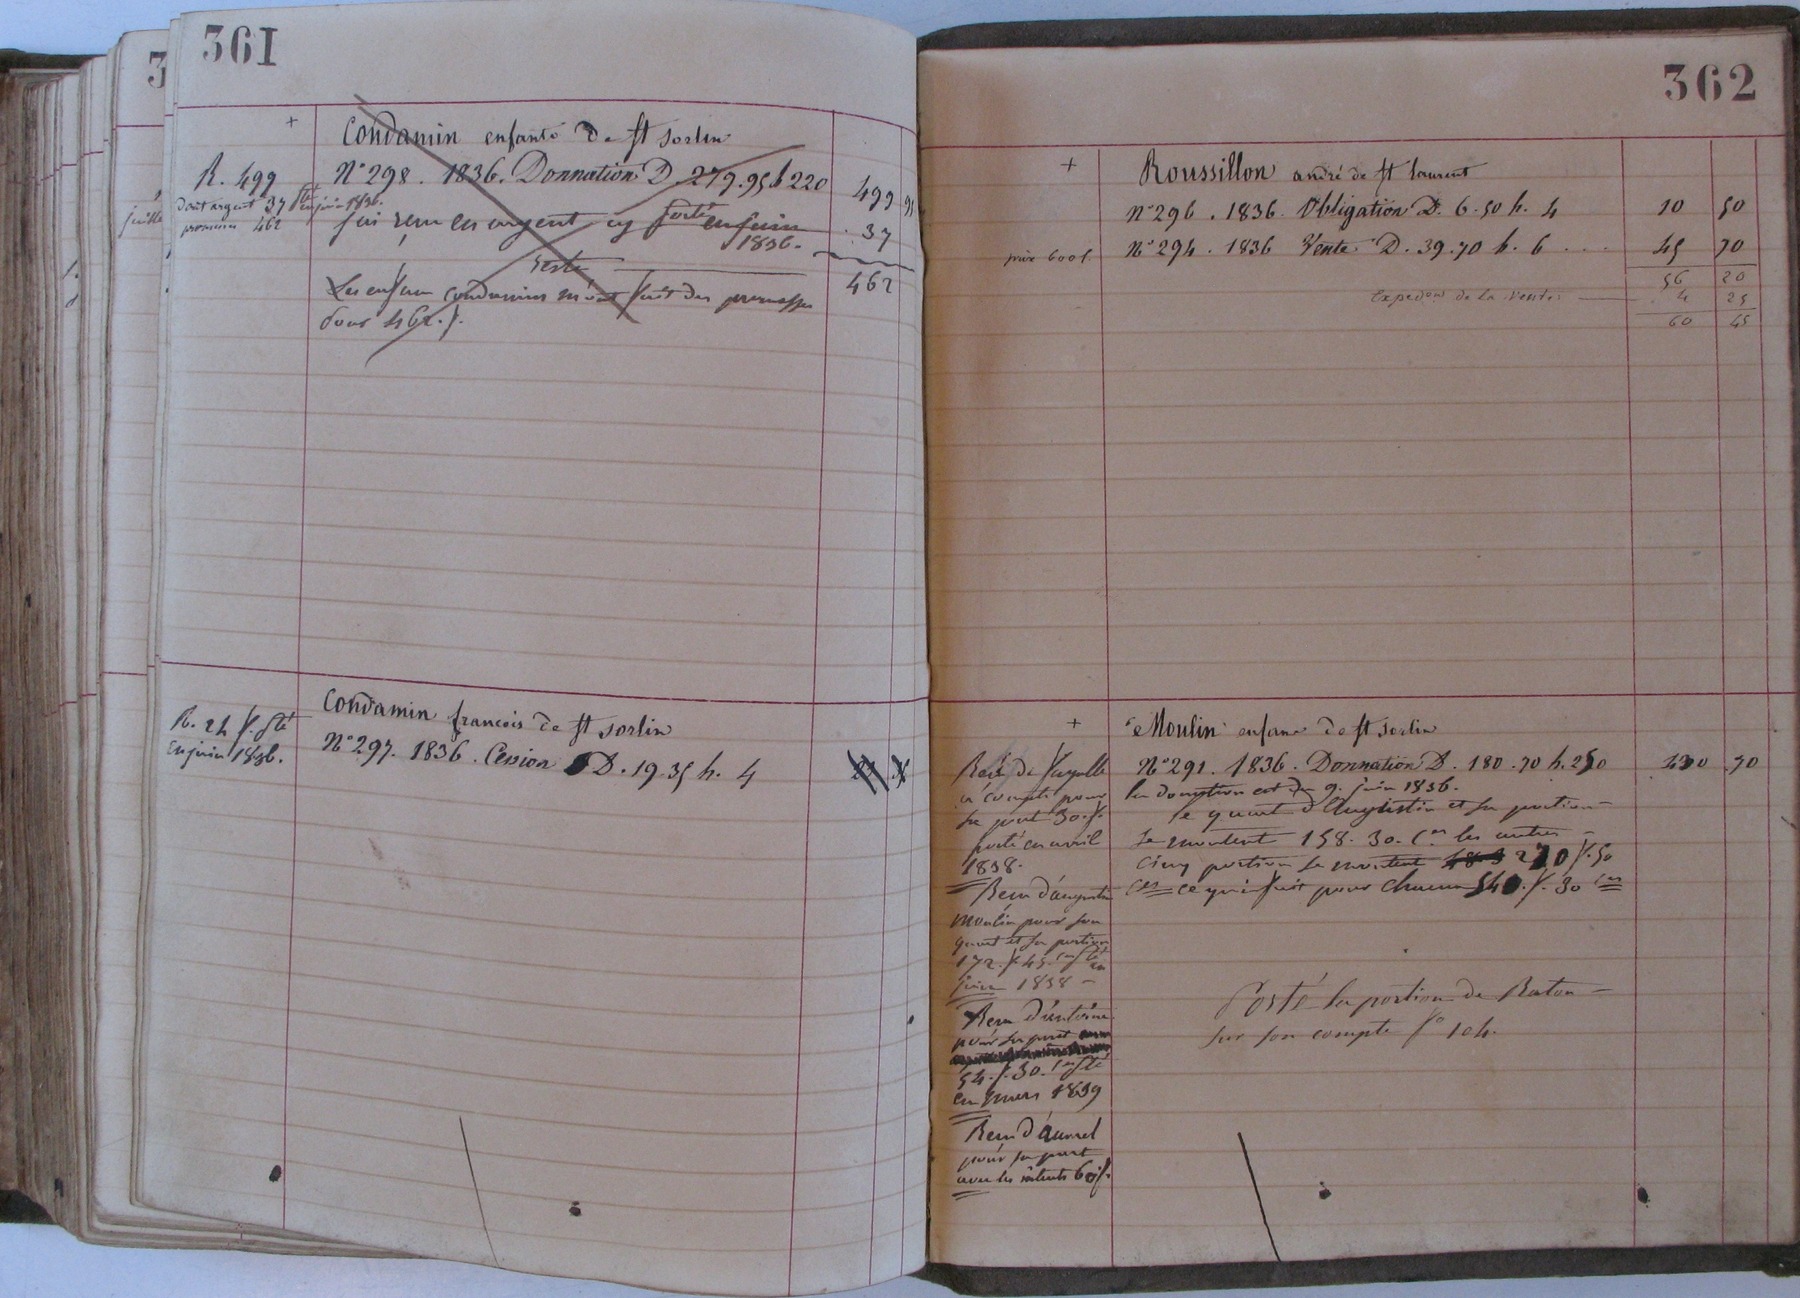 361
+
Condamin enfants de St Sorlin
R. 499
N° 298. 1836. Donnation D 279.95 h 220
499 95
dont argent 37 pté en juin 1836.
promesses 462
jai reçu en argent cy porté en juin 1836.
37
reste
462
Les enfans condamins m'ont fait des promesses
pour 462 f.
Condamin francois de St Sorlin
R. 24 f. pté
en juin 1836.
N° 297. 1836. Cession D. 19.35 h. 4
362
+
Roussillon andré de St laurent
N° 296. 1836. Obligation D. 6.50 h. 4
10 50
prix 600 f.
N° 294. 1836 Vente D. 39.70 h. 6
45 70
56 20
Expedon de la Vente
4 25
60 45
+
Moulin enfans de St Sorlin
N° 291. 1836. Donnation D. 180.70 h. 250
430 70
la donation est du 9. juin 1836.
le quart d'Augustin et sa portion
se montent 158. 30. c. les autres
cinq portions se montent 270 f. 50
ces ce qui fait pour chacun 54 f. 30 ces
Porté la portion de Raton
sur son compte f° 104.
Recu de
a compte pour
sa part 30 f.
porté en avril
1838.
Recu d'augustin
moulin pour son
quart et sa portion
172. f 45. ces pté
en
juin 1838
Recu d'antoine
pour sa part
54. f. 30. ces pté
en mars 1839
Recu d'
pour sa part
avec les intérêts 60 f.